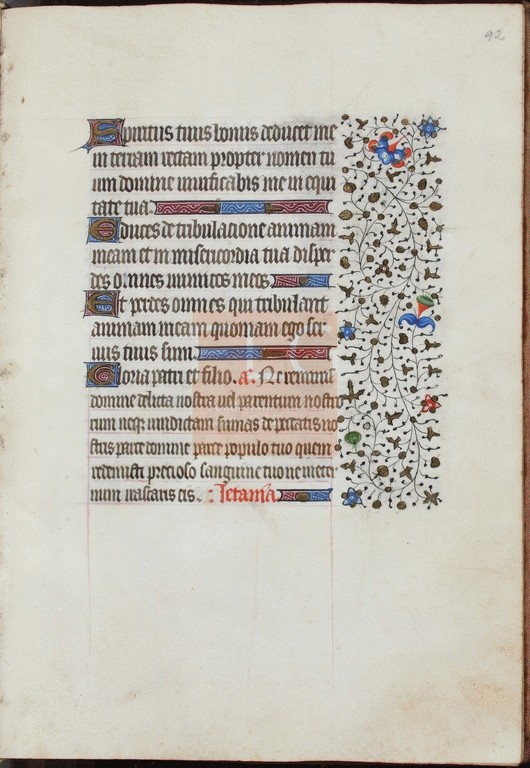 92
Spiritus tuus bonus deducet me
in terram rectam propter nomen tu
um domine vivificabis me in equi
tate tua.
Educes de tribulacione animam
meam et in misericordia tua disper
des omnes inimicos meos
Et perdes omnes qui tribulant
animam meam quoniam ego ser
vus tuus sum.
Gloria patri et filio. a. Ne reminis
domine delicta nostra vel parentum nostro
rum neqz vindictam sumas de peccatis no
stris parce domine parce populo tuo quem
redemisti precioso sanguine tuo ne in eter
num irascaris eis. : letania